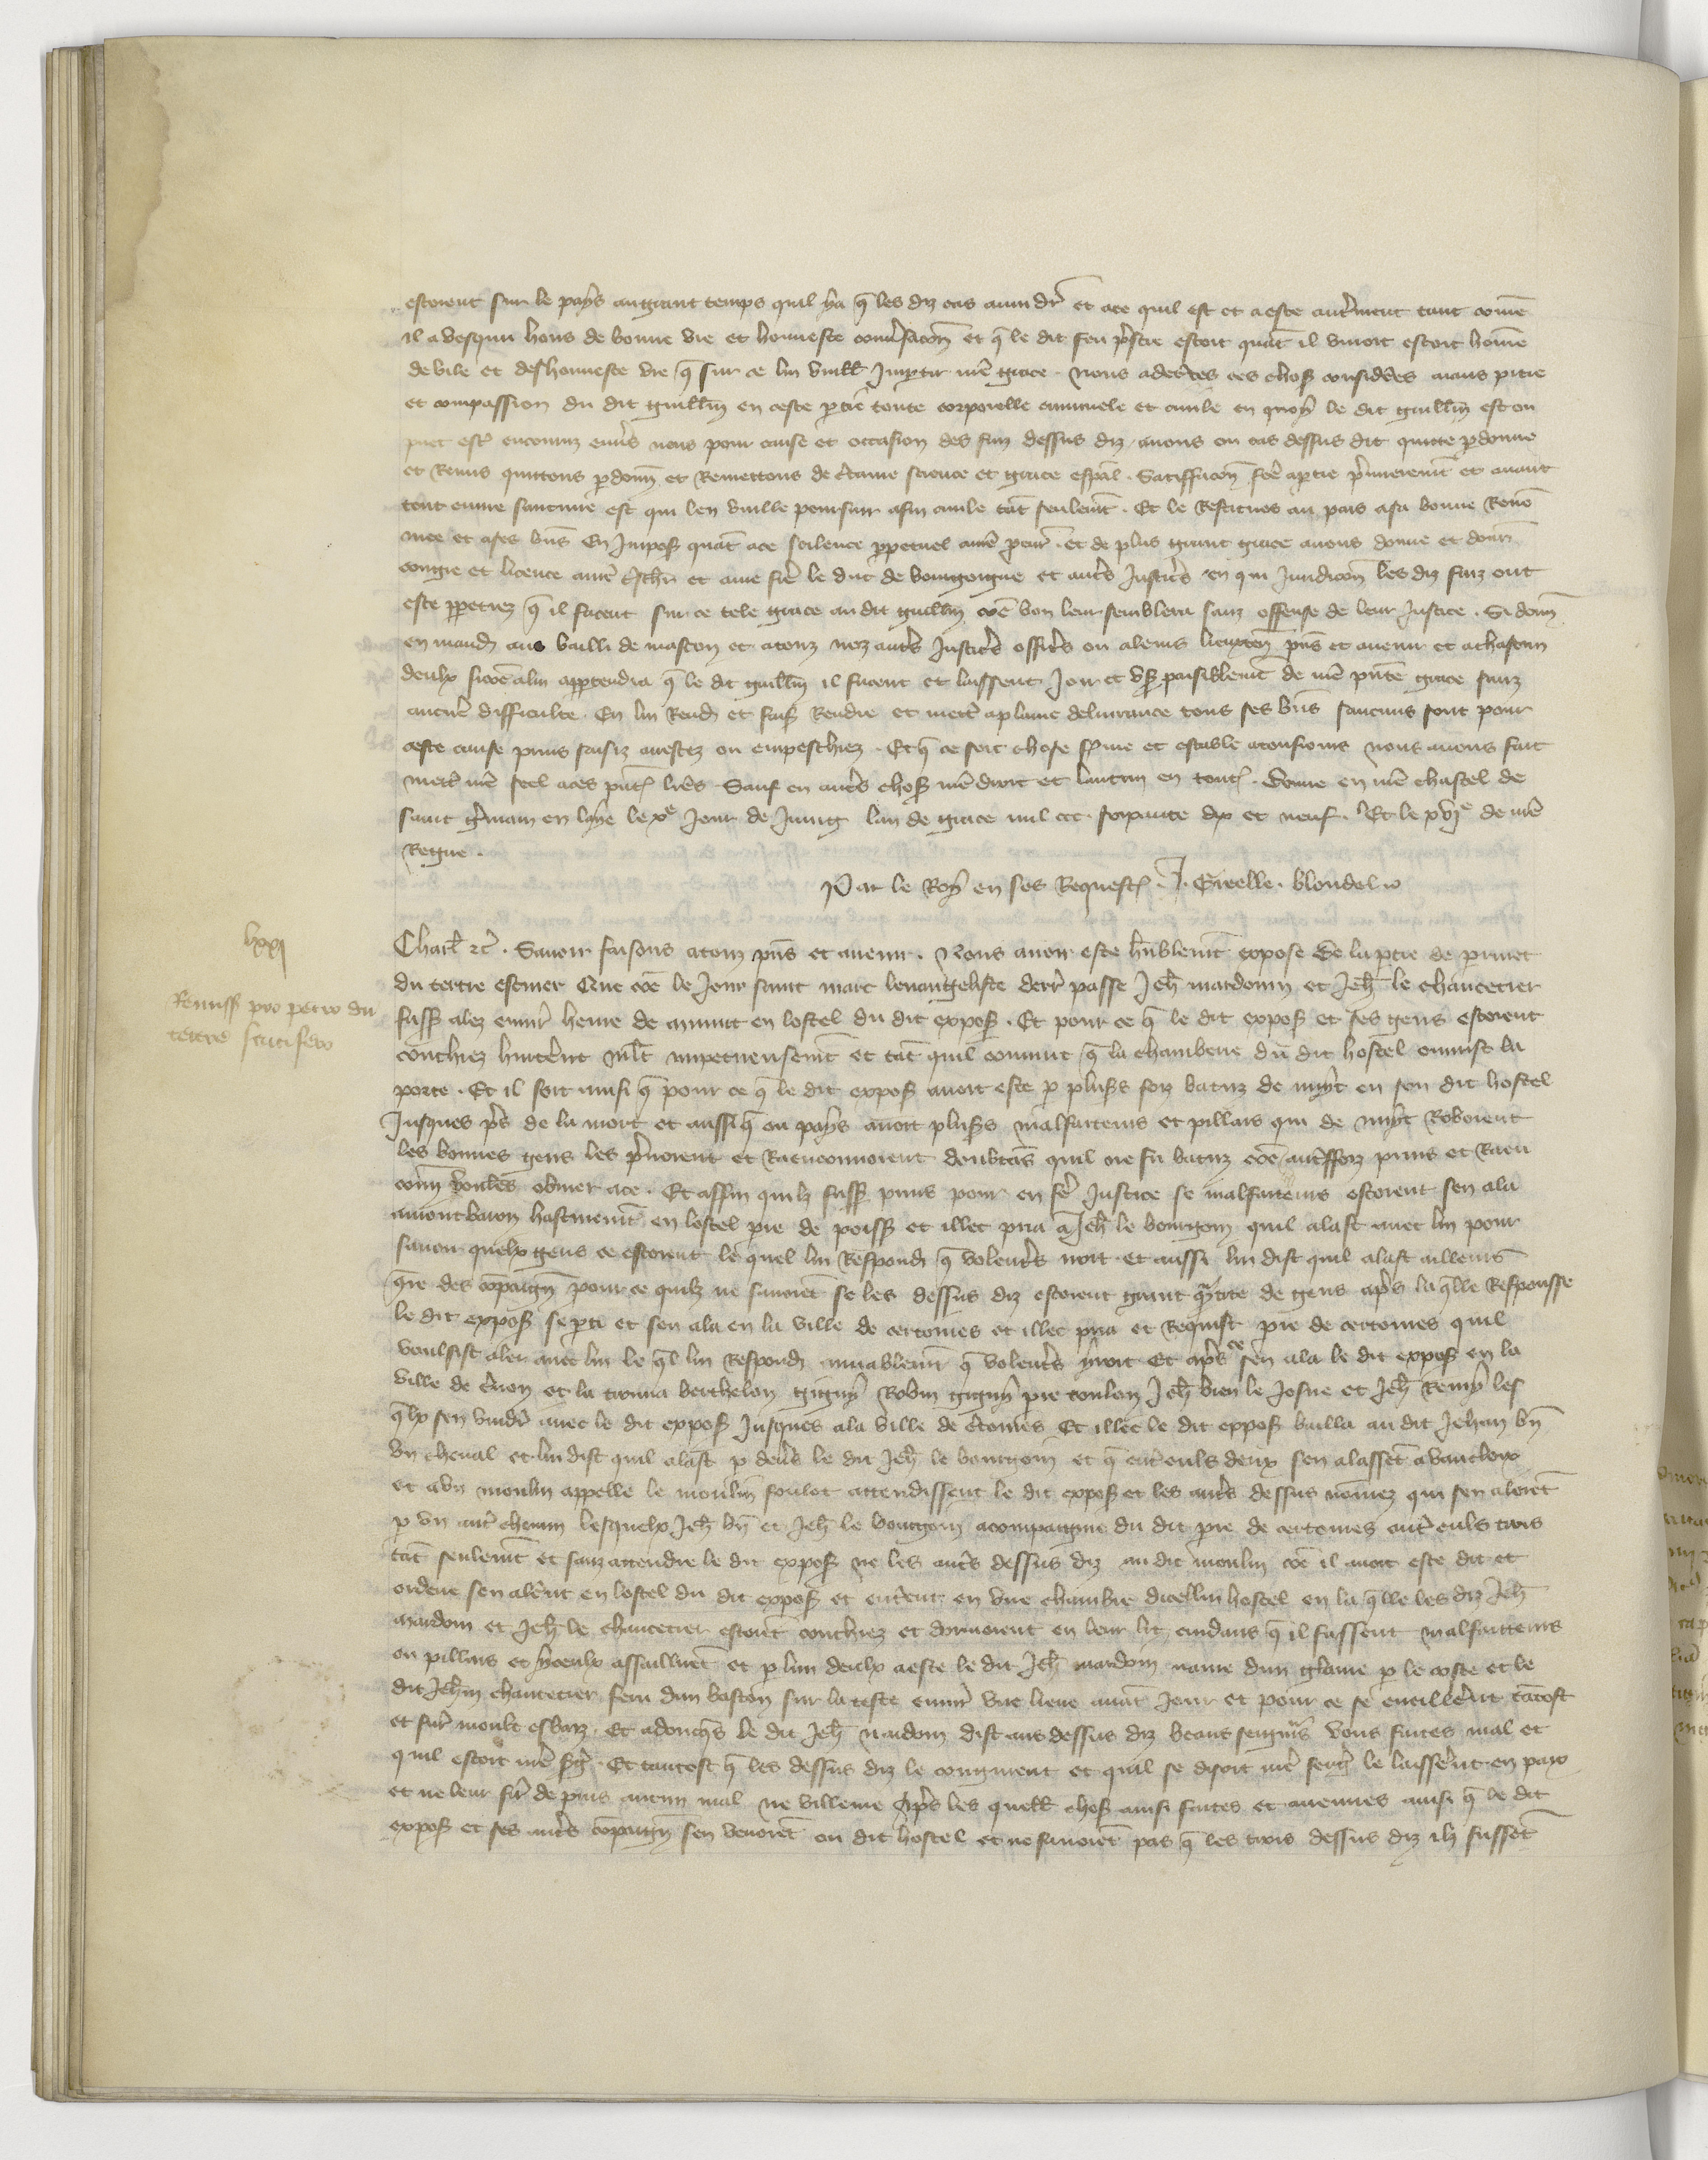 estoient sur le pays au grant temps quil ya q̃ les diz cas et ace quil est et a este autremẽt tant cõme
il a vesqui hons de bonne vie et honneste conṽsacõn et q̃ le dit feu p̃stre estoit quãt il vivoit estoit hõme
de vile et deshonneste vie q̃ sur ce lui vueill̃ Imptir nr̃e grace . Nous adcẽtes ces chos̃ considẽes aians pitie
et compassion du dit guill̃m en ceste ptie toute corporelle criminele et civile en quoy le dit guill̃m est ou
puet est̃ encouruz env̾s nous pour cause et occasion des faiz dessus diz avons ou cas dessus dit quitte pdonne
et Remis quittons pdonñ et Remettons de c̾taine science et grace esp̃al . Satisffacõn fc̃e aptie p̃mierem̃t et avant
tout euvre saucune est qui len vueille poursuir afin civile tãt seulem̃t . Et le Restituos au pais asa bonne Renõ
mee et ases bñs En Impos̃ quãt ace scilence ppetuel anr̃e pcur̃ . et de plus grant grace avons donne et donñ
congie et licence anr̃e et ame fr̃e le duc de bourgoigne et autr̾s Justic̾s en qui Juridicõn les diz faiz ont
este ppetrez q̃ il facent sur ce tele grace au dit guill̃m cõe bon leur semblera sanz offense de leur Justice . Si donñ
en mand̃ au bailli de mascon et atouz noz autr̾s Justic̾s offic̾s ou aleurs lieuxteñ pñs et avenir et achascun
deulx sicõe alui apptendra q̃ le dit guill̃m il facent et laissent Joir et us̃ paisiblem̃t de nr̃e pñte grace sanz
aucune difficulte . En lui Rend̃ et fais̃ Rendre et mectr̃ aplaine delivrance tous ses bñs saucuns sont pour
ceste cause prins saisiz arrestez ou empeschiez . Et q̃ ce soit chose ferme et estable atousiours nous avons fait
mectr̃ nr̃e seel aces pñt̃ lr̃es Sauf en autr̾s chos̃ nr̃e droit et lautrui en tout̃ . Donne en nr̃e chastel de
saint g̃main en laye le xᵉ Jour de Juing lan de grace mil ccc soixante dix et neuf . Et le xvjᵉ de nr̃e
Regne .
Par le Roy en ses Request̃ . J. Greelle . blondel
lxxj
Remiss̃ pro petro du
tertre scutifero
Charl̃ ⁊c̃ . Savoir faisons atouz pñs et avenir . Nous avoir este hũblem̃t expose de la ptie de perrinet
du tertre escuier Que cõe le Jour saint marc levangeliste derr̃ passe Jeh̃ mardouin et Jeh̃ le chancetier
fuss̃ alez envir̃ heure de mienuit en lostel du dit expos̃ . Et pour ce q̃ le dit expos̃ et ses gens estoient
couchiez hurter̃nt ml̃t impetueusem̃t et tãt quil convint q̃ la chamberie du dit hostel ouvrist la
porte . Et il soit ainsi q̃ pour ce q̃ le dit expos̃ avoit este p plus̃s foiz batuz de nuyt en son dit hostel
Jusques pr̃s de la mort et aussi q̃ ou pays avoit plus̃s malfaiteurs et pillars qui de nuyt Roboient
les bonnes gens les p̃noient et Raenconnoient doubtãs quil ne fu batuz cõe autr̾ffoiz prins et Raen
conñ voulẽs obvier ace . Et affin quilz fuss̃ prins pour en fẽ Justice se malfaiteurs estoient sen ala
amontbaron hastivem̃t en lostel pre de poiss̃ et illec pria a Jeh̃ le bourgoin quil alast avec lui pour
savoir quelx gens ce estoient le quel lui Respond̃ q̃ volent̾s iroit et aussi lui dist quil alast ailleurs
q̃re des cõpaigñ pour ce quilz ne savoiẽt se les dessus diz estoient grant q̃ntite de gens apr̃s laq̃lle Responsse
le dit expos̃ se pti et sen ala en la ville de certomes et illec pria et Requist pre de certomes quil
voulsist aler avec lui le q̃l lui Respond̃ amiablem̃t q̃ volent̾s yroit et apr̃s ce sen ala le dit expos̃ en la
ville de c̾non et la trouva berthelon giguy Robin giguy pre toulon Jeh̃ bien le Josne et Jeh̃ Remy les
q̃lx sen vindr̃ avec le dit expos̃ Jusques ala ville de c̾tomes Et illec le dit expos̃ bailla au dit Jehan bñ
un cheval et lui dist quil alast p dev̾s le dit Jeh̃ le bourgoin et q̃ entr̾euls deux sen alassẽt avancloix
et a un moulin appelle le moulin foulot attendissent le dit expos̃ et les autr̾s dessus nõmez qui sen aloiẽt
p un autr̃ chemin lesquelx Jeh̃ bñ et Jeh̃ le bourgoin acompaigne du dit pre de certomes entr̾euls trois
tãt seulem̃t et sanz attendre le dit expos̃ ne les autr̾s dessus diz au dit moulin cõe il avoit este dit et
ordene sen aler̃nt en lostel du dit expos̃ et entr̾ent en une chambre dicellui hostel en la q̃lle les diz Jeh̃
mardoin et Jeh̃ le chancetier estoiẽt couchiez et dormoient en leur lit cuidans q̃ il fussent malfaitteurs
ou pillars et yceulx assaillirẽt et p lun deulx a este le dit Jeh̃ mardoin navre dun glaive p le coste et le
dit Jeh̃m chancetier feru dun baston sur la teste envir̃ une lieue avãt Jour et pour ce se eveiller̃nt tãtost
et fur̃ moult esbaiz . Et adonq̃s le dit Jeh̃ mardoin dist aus dessus diz beaus seigneurs vous faites mal et
quil estoit nr̃e s̃gẽ . Et tantost q̃ les dessus diz le congnurent et quil se disoit nr̃e serg̃ le laisser̃nt en paix
et ne leur fir̃ de puis aucun mal ne villenie Apr̃s les quell̃ chos̃ ainsi faites et avenues ainsi q̃ le dit
expos̃ et ses autr̾s cõpaigñ sen venoiẽt ou dit hostel et ne savoiẽt pas q̃ les trois dessus diz ih fussẽt